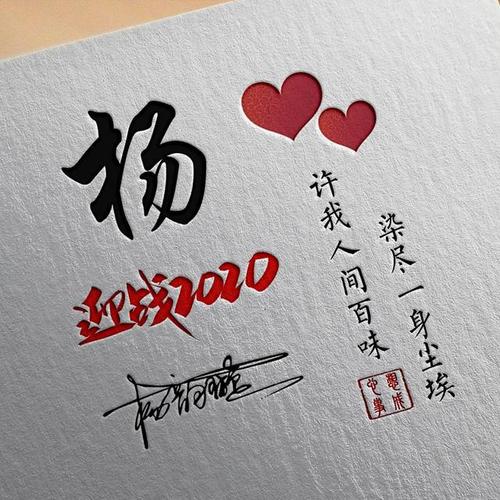 杨
迎战2020
染尽一身尘埃
许我人间百味
心想事成